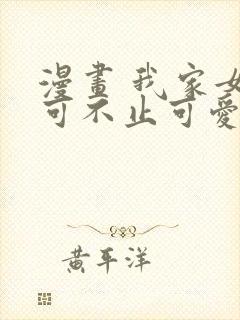 漫畫 我家女
可不止可愛
黃平洋